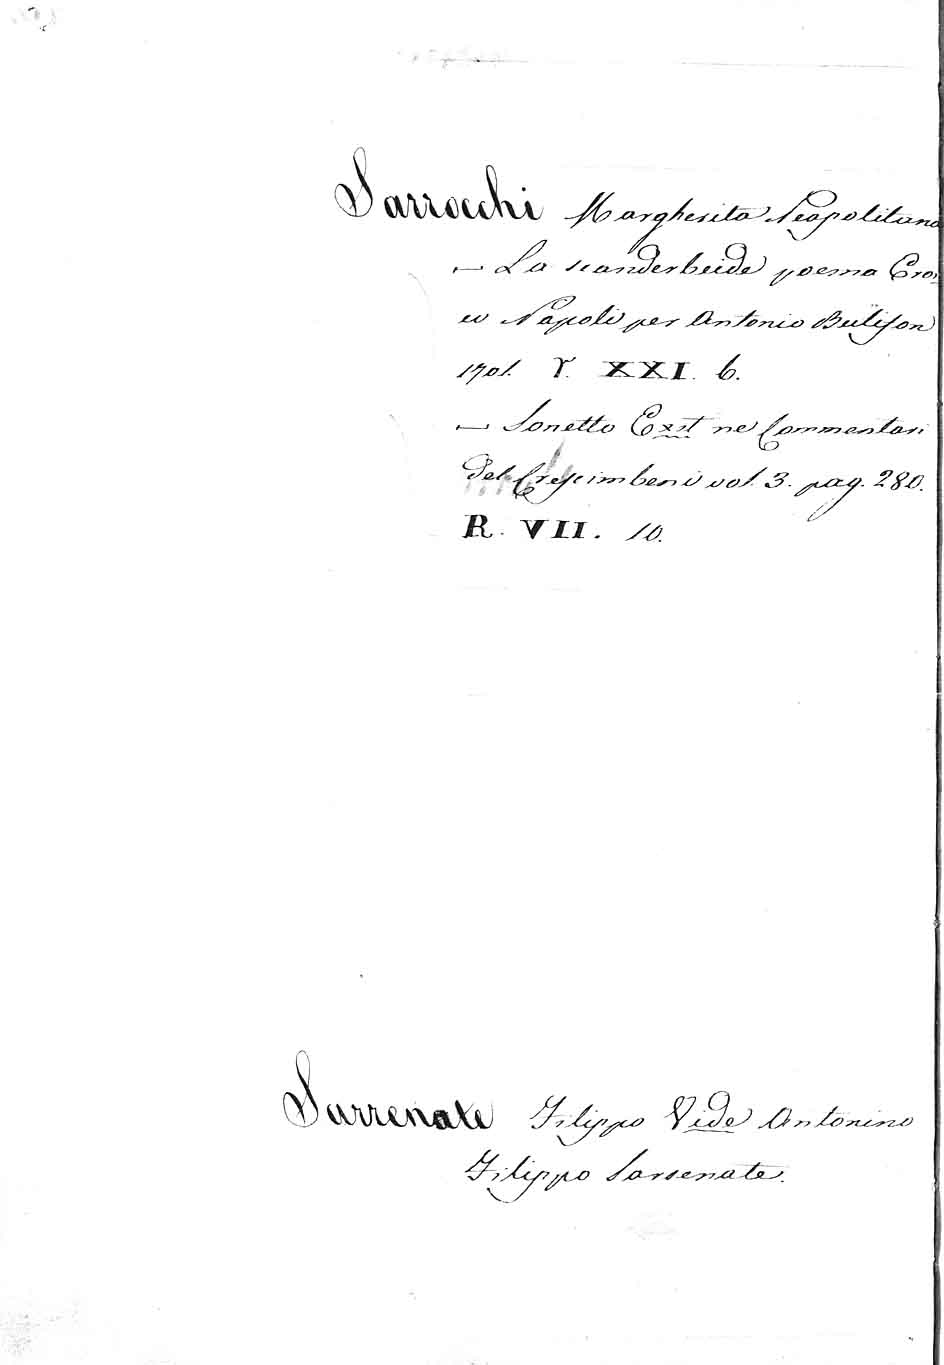 Sarrocchi Margherita Neapolitana
— La scanderbeide poema Eroi
co Napoli per Antonio Bulifon
1701. Y. XXI. 6.
— Sonetto Exst ne Commentari
del Crescimbeni vol. 3. pag. 280.
R. VII. 10.
Sarrenate Filippo Vide Antonino
Filippo Sarsenate.